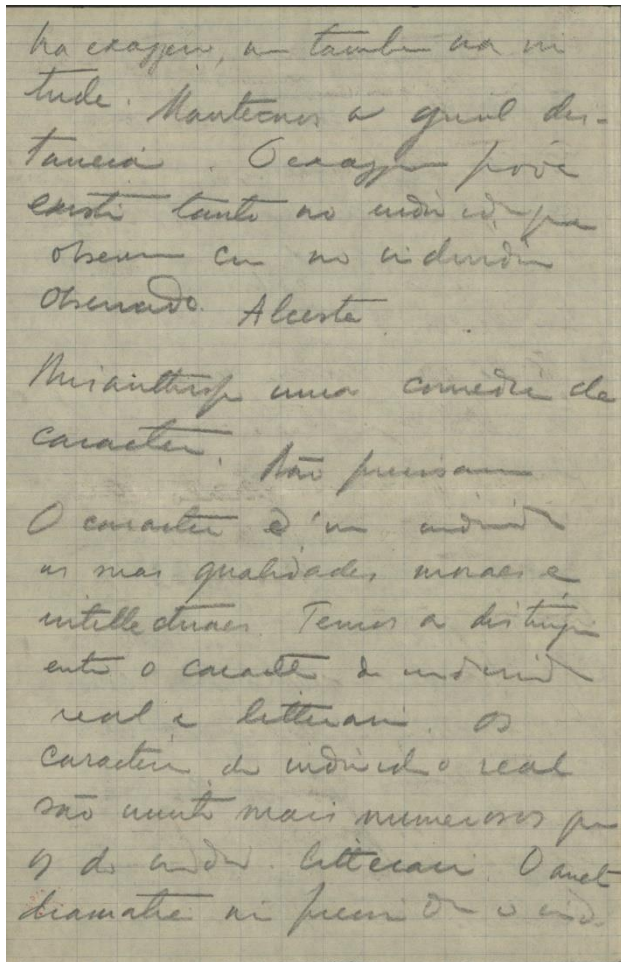 ha exaggero, ha tambem na vir
tude. Mantemos a igual dis-
tancia. O exaggero póde
existir tanto no individuo que
observa como no individuo
observado. Alceste
Misanthrope uma comedia de
caracter. Não precisam
O caracter é um individuo
as suas qualidades moraes e
intellectuaes. Temos a distinguir
entre o caracter do individuo
real e litterario. Os
caracteres do individuo real
são muito mais numerosos que
os do indiv. litterario. O auct
dramatico